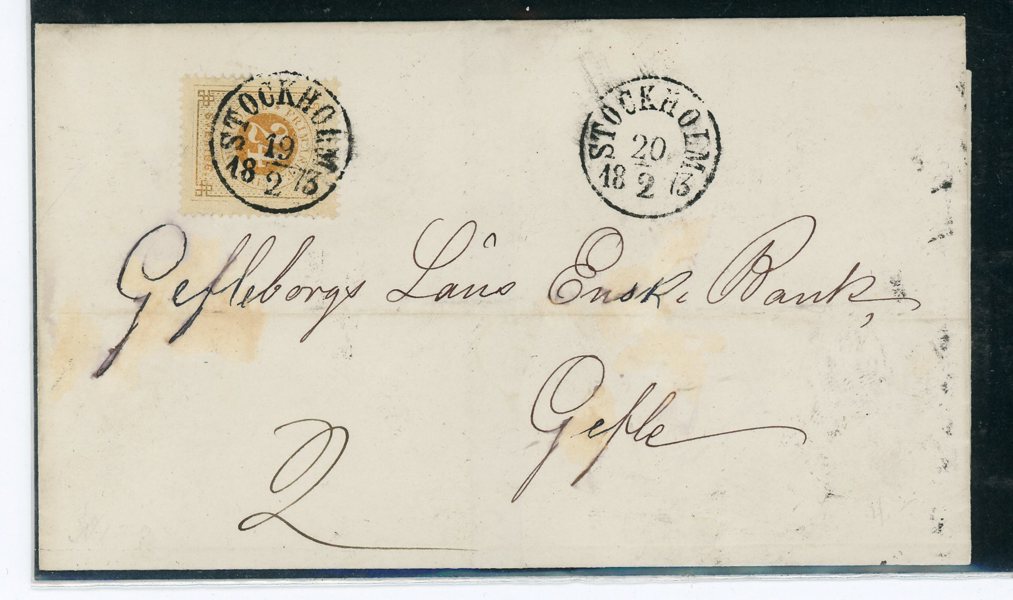 STOCKHOLM
19
18 2 73
STOCKHOLM
20
18 2 73
Gefleborgs Läns Ensk. Bank,
Gefle
2